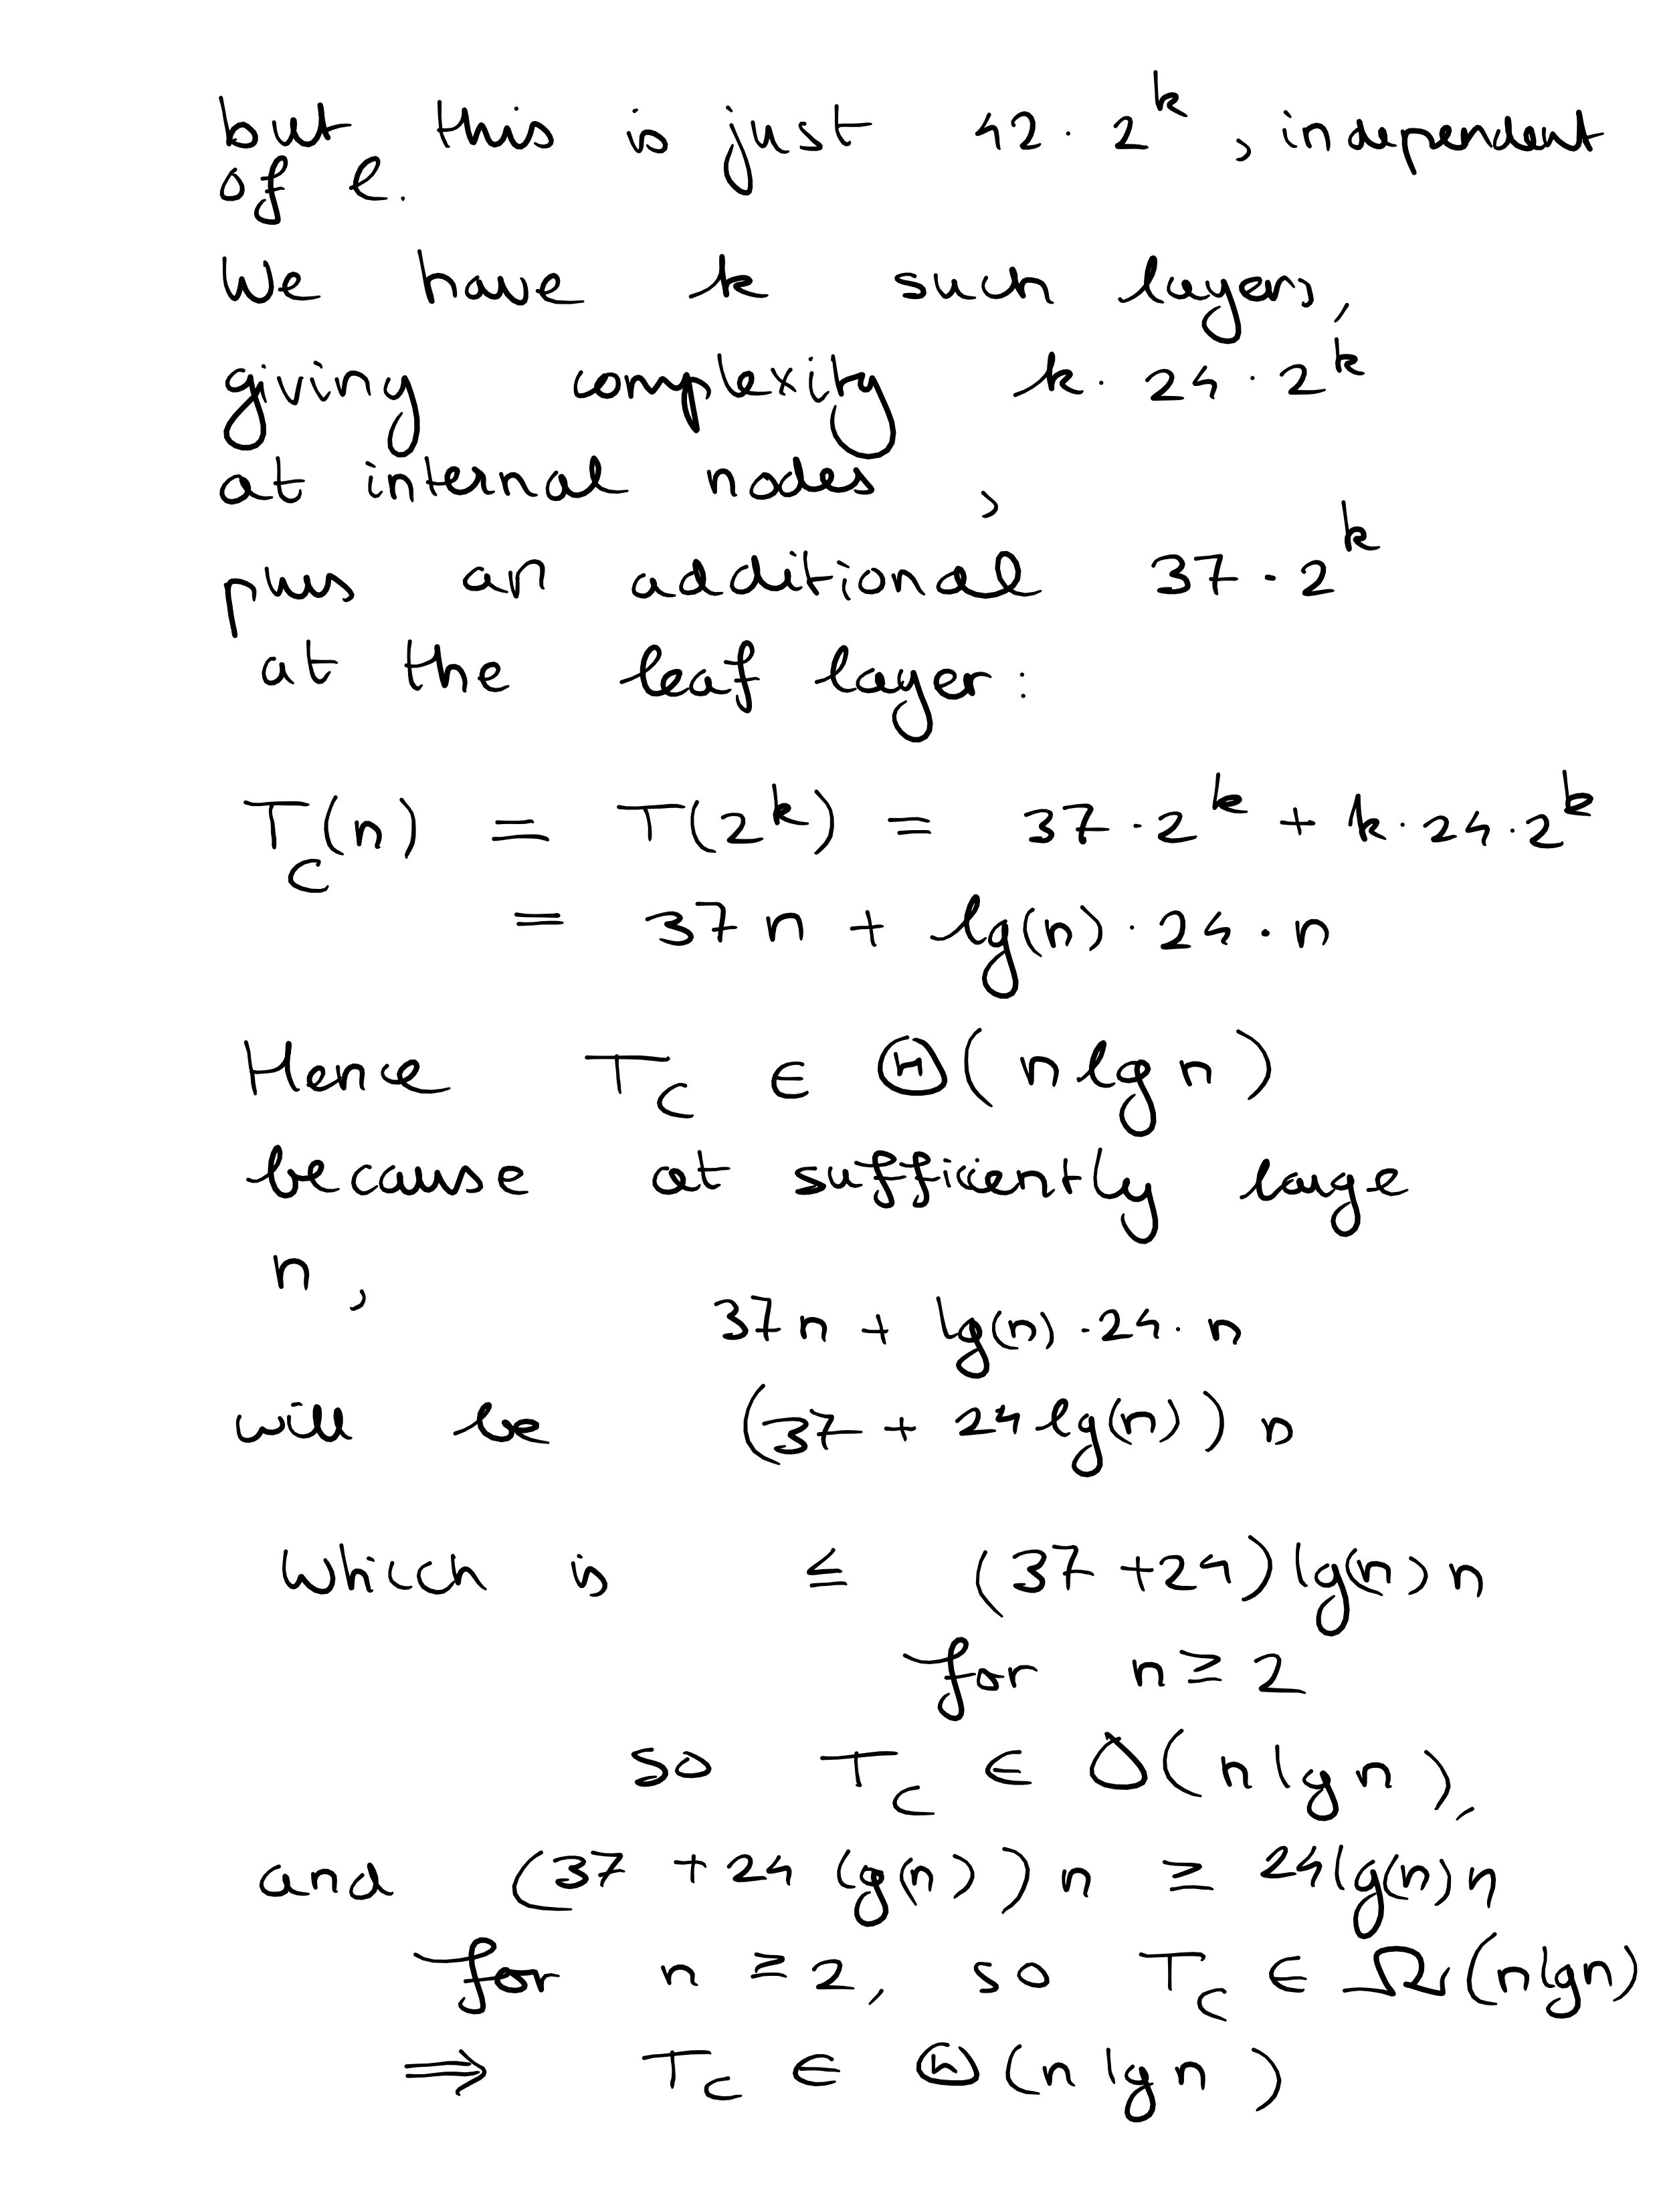 but this is just 42 · 2^k, independent
of l.
We have k such layers,
giving complexity k · 24 · 2^k
at internal nodes,
plus an additional 37 · 2^k
at the leaf layer:
T_C(n) = T(2^k) = 37 · 2^k + k · 24 · 2^k
= 37n + lg(n) · 24 · n
Hence T_C ∈ Θ(n lg n)
because at sufficiently large
n,
37n + lg(n) · 24 · n
will be (37 + 24 lg(n)) n
Which is ≤ (37 + 24) lg(n) n
for n ≥ 2
so T_C ∈ O(n lg n),
and (37 + 24 lg(n)) n ≥ 24 lg(n) n
for n ≥ 2, so T_C ∈ Ω(n lg n)
⇒ T_C ∈ Θ(n lg n)